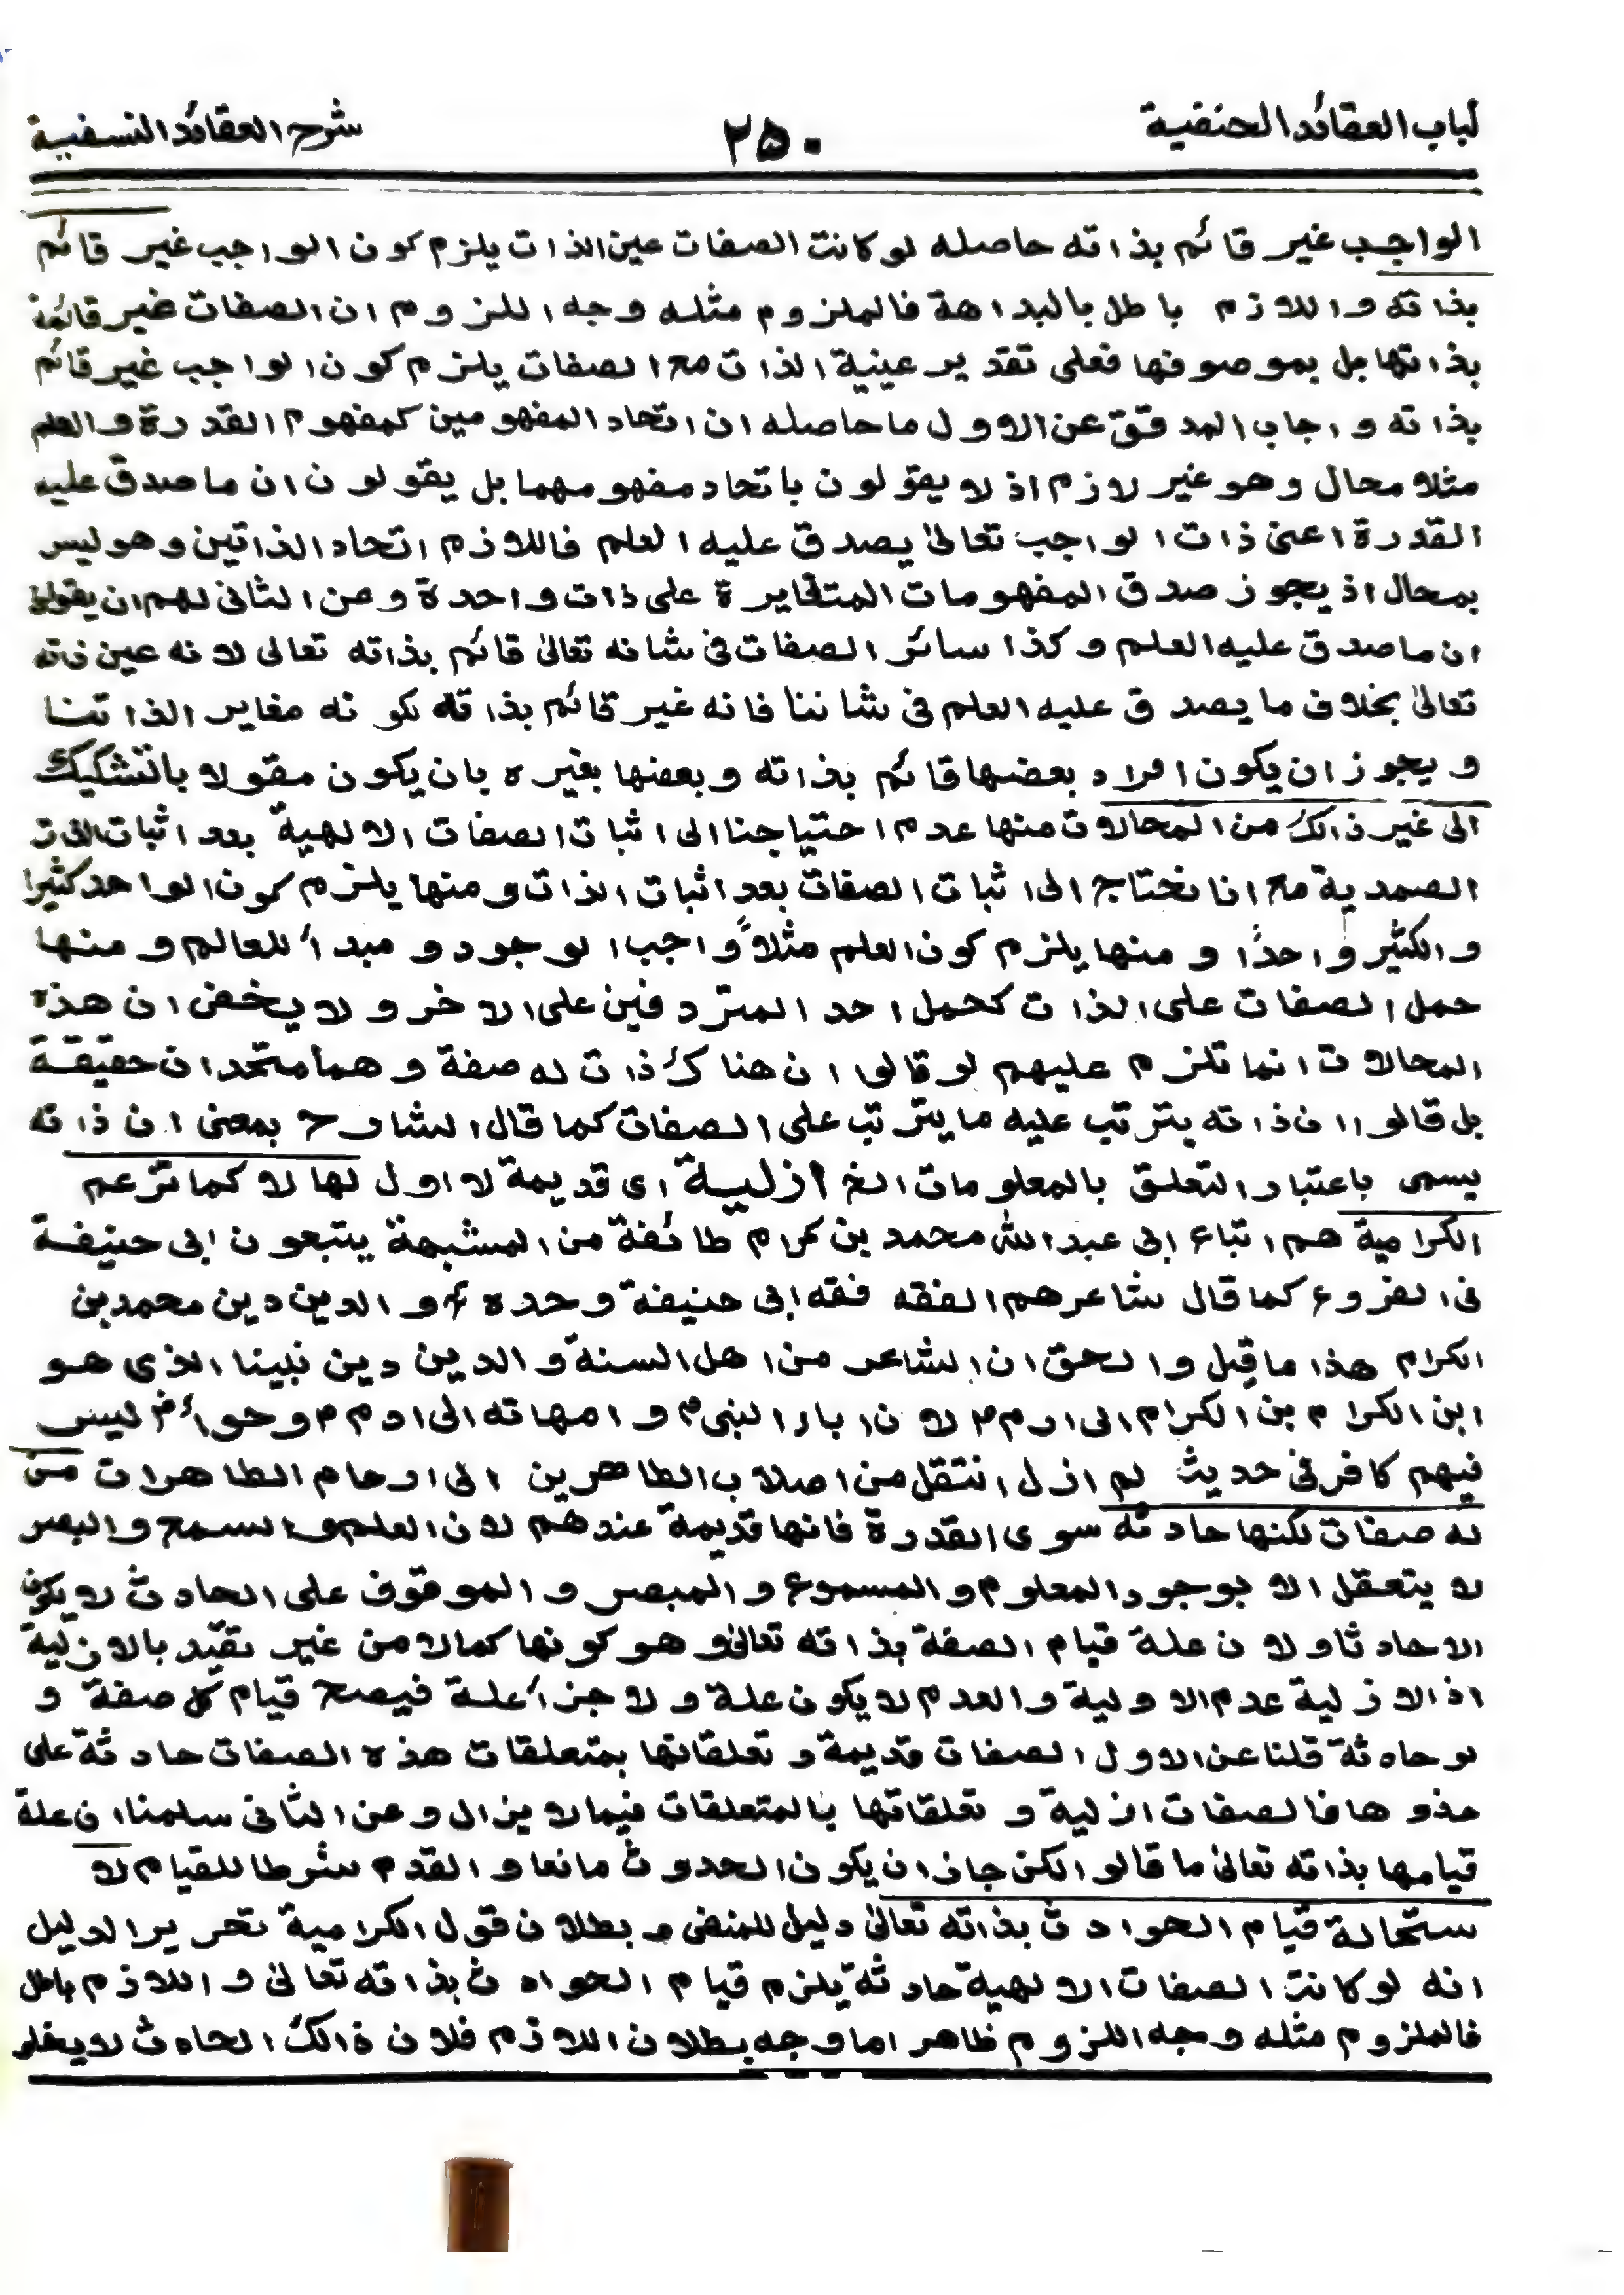 لباب العقائد الحنفية ۲۵۰ شرح العقائد النسفية
الواجب غير قائم بذاته حاصله لو كانت الصفات عين الذات يلزم كون الواجب غير قائم
بذاته واللازم باطل بالبداهة فالملزوم مثله وجه اللزوم ان الصفات غير قائمة
بذاتها بل بموصوفها فعلى تقدير عينية الذات مع الصفات يلزم كون الواجب غير قائم
بذاته واجاب المدقق عن الاول ما حاصله ان اتحاد المفهومين كمفهوم القدرة والعلم
مثلا محال وهو غير لازم اذ لا يقولون باتحاد مفهومهما بل يقولون ان ما صدق عليه
القدرة اعنى ذات الواجب تعالىٰ يصدق عليه العلم فاللازم اتحاد الذاتين وهو ليس
بمحال اذ يجوز صدق المفهومات المتغايرة على ذات واحدة وعن الثانى لهم ان يقولوا
ان ما صدق عليه العلم وكذا سائر الصفات فى شانه تعالىٰ قائم بذاته تعالى لانه عين ذاته
تعالىٰ بخلاف ما يصدق عليه العلم فى شاننا فانه غير قائم بذاته لكونه مغاير الذاتنا
ويجوز ان يكون افراد بعضها قائم بذاته وبعضها بغيره بان يكون مقولا بالتشكيك
الى غير ذالك من المحالات منها عدم احتياجنا الى اثبات الصفات الالهية بعد اثبات الذات
الصمدية مع انا نحتاج الى اثبات الصفات بعد اثبات الذات ومنها يلزم كون الواحد كثيرا
والكثير واحدًا ومنها يلزم كون العلم مثلاً واجب الوجود و مبدأ للعالم و منها
حمل الصفات على الذات كحمل احد المتردفين على الاخر ولا يخفى ان هذه
المحالات انما تلزم عليهم لو قالوا ان هناك ذات له صفة وهما متحدان حقيقة
بل قالوا ان ذاته يترتب عليه ما يترتب على الصفات كما قال الشارح بمعنى ان ذاته
يسمى باعتبار التعلق بالمعلومات الخ ازلية اى قديمة لا اول لها لا كما تزعم
الكرامية هم اتباع ابى عبد الله محمد بن كرام طائفة من المشبهة يتبعون ابى حنيفة
فى الفروع كما قال شاعرهم الفقه فقه ابى حنيفة وحده ؛ والدين دين محمد بن
الكرام هذا ما قيل والحق ان الشاعر من اهل السنة والدين دين نبينا الذى هو
ابن الكرام بن الكرام الى ادم ۴ لان اباء النبى م وامهاته الى ادم م وحواء م ليس
فيهم كافر فى حديث لم ازل انتقل من اصلاب الطاهرين الى ارحام الطاهرات من
له صفات لكنها حادثة سوى القدرة فانها قديمة عندهم لان العلم والسمع والبصر
لا يتعقل الا بوجود المعلوم والمسموع والمبصر والموقوف على الحادث لا يكون
الا حادثا ولان علة قيام الصفة بذاته تعالىٰ وهو كونها كمالا من غير تقيد بالازلية
اذ الازلية عدم الاولية والعدم لا يكون علة ولا جزأ علة فيصح قيام كل صفة و
لو حادثة قلنا عن الاول الصفات قديمة و تعلقاتها بمتعلقات هذه الصفات حادثة على
حذوها فالصفات ازلية و تعلقاتها بالمتعلقات فيما لا يزال وعن الثانى سلمنا ان علة
قيامها بذاته تعالىٰ ما قالوا لكن جاز ان يكون الحدوث مانعا والقدم شرطا للقيام لا
ستحالة قيام الحوادث بذاته تعالىٰ دليل للمنفى و بطلان قول الكرامية تحرير الدليل
انه لو كانت الصفات الالهية حادثة يلزم قيام الحوادث بذاته تعالىٰ واللازم باطل
فالملزوم مثله وجه اللزوم ظاهر اما وجه بطلان اللازم فلان ذالك الحادث لا يخلو